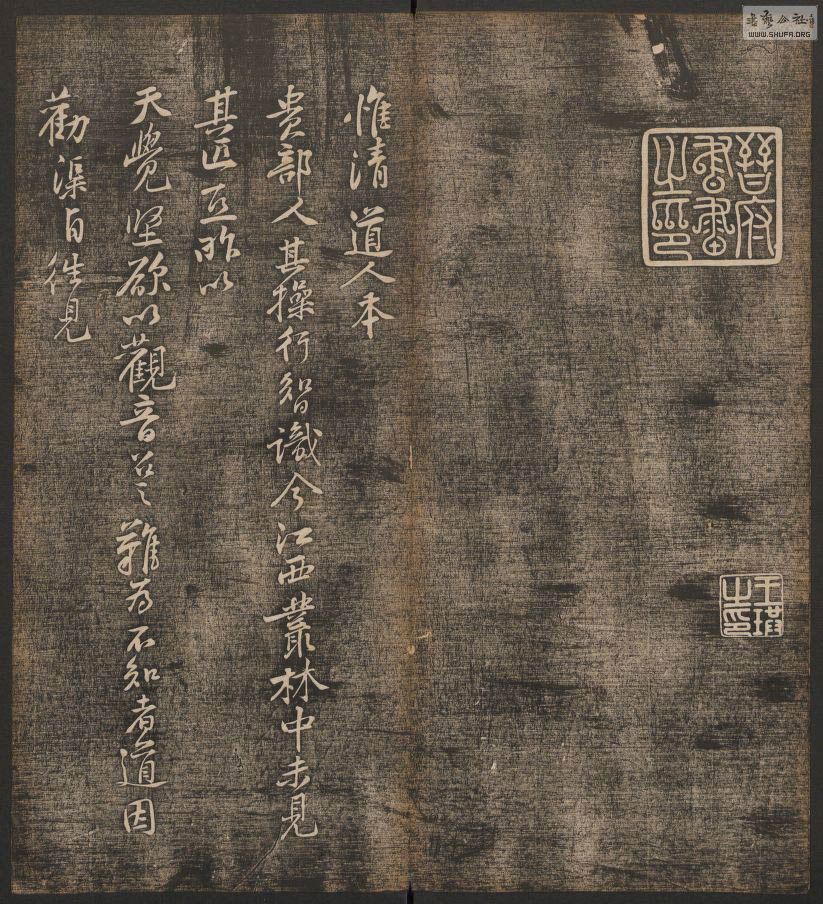 書藝公社
WWW.SHUFA.ORG
晉府書畫之印
之印
惟清道人本
貴部人其操行智識今江西叢林中未見
其匹昨以
天覺堅欲以觀音召之難為不知者道因
勸渠自往見